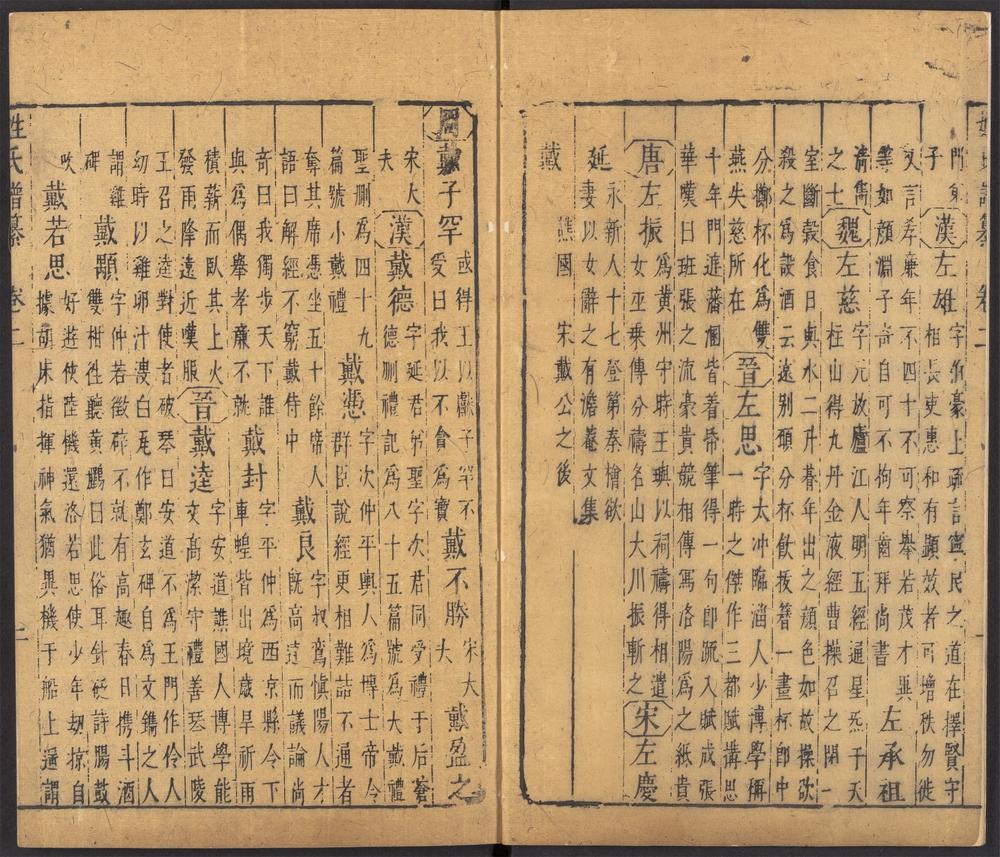 姓氏譜纂 卷二
門弟
子
漢左雄
字伯豪上疏言寧民之道在擇賢守
相長吏惠和有顯效者可增秩勿徙
文言孝廉年不四十不可察舉若茂才異
等如顏淵子奇自可不拘年齒拜尚書
左承祖
清雋
之士
魏左慈
字元放廬江人明五經通星炁于天
柱山得九丹金液經曹操召之閉一
室斷穀食日與水二升朞年出之顏色如故操欲
殺之為設酒云遠別碩分杯飲拔簪一畫杯即中
分擲杯化為雙
燕失慈所在
晉左思
字太冲臨淄人少博學稱
一時之傑作三都賦構思
十年門庭藩圂皆着帋筆得一句即疏入賦成張
華嘆曰班張之流豪貴競相傳寫洛陽為之紙貴
唐左振
為黃州守時王璵以祠禱得相遣
女巫乘傳分禱名山大川振斬之
宋左慶
延
永新人十七登第秦檜欲
妻以女辭之有澹菴文集
戴 譙國 宋戴公之後
周戴子罕
或得玉以獻子罕不
受曰我以不貪為寶
戴不勝
宋大
夫
戴盈之
宋大
夫
漢戴德
字延君弟聖字次君同受禮于后蒼
德刪禮記為八十五篇號為大戴禮
聖刪為四十九
篇號小戴禮
戴憑
字次仲平輿人為博士帝令
群臣說經更相難詰不通者
奪其席憑坐五十餘席帝人
語曰解經不窮戴侍中
戴良
字叔鸞慎陽人才
既高遠而議論尚
奇曰我獨步天下誰
與為偶舉孝廉不就
戴封
字平仲為西京縣令下
車蝗皆出境歲旱祈雨
積薪而臥其上火
發雨降遠近嘆服
晉戴逵
字安道譙國人博學能
文高潔守禮善琴武陵
王召之逵對使者破琴曰安道不為王門作伶人
幼時以雞卵汁溲白瓦作鄭玄碑自為文鐫之人
謂雞
碑
戴顒
字仲若徵辟不就有高趣春日携斗酒
雙柑徃聽黃鸝曰此俗耳針砭詩腸鼓
吹
戴若思
好遊使陸機還洛若思使少年刼掠自
據胡床指揮神氣猶異機于船上遥謂
姓氏譜纂 卷二 二